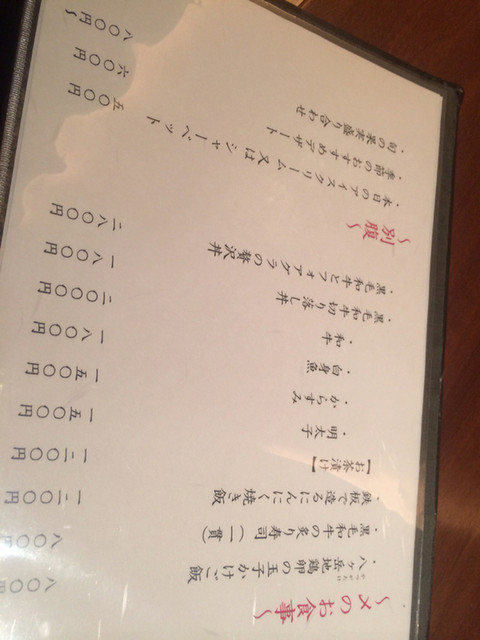 ～〆のお食事～
・八ヶ岳地鶏卵の玉子かけご飯
やつがたけ
・黒毛和牛の炙り寿司（一貫）
・鉄板で造るにんにく焼き飯
【お茶漬け】
・明太子
・からすみ
・白身魚
・和牛
・黒毛和牛切り落し丼
・黒毛和牛とフォアグラの贅沢丼
八〇〇
八〇〇円
一二〇〇円
一二〇〇円
一五〇〇円
一五〇〇円
一八〇〇円
二〇〇〇円
一八〇〇円
二八〇〇円
～別腹～
・本日のアイスクリーム又はシャーベット
・季節のおすすめデザート
・旬の果実盛り合わせ
五〇〇円
六〇〇円
八〇〇円～